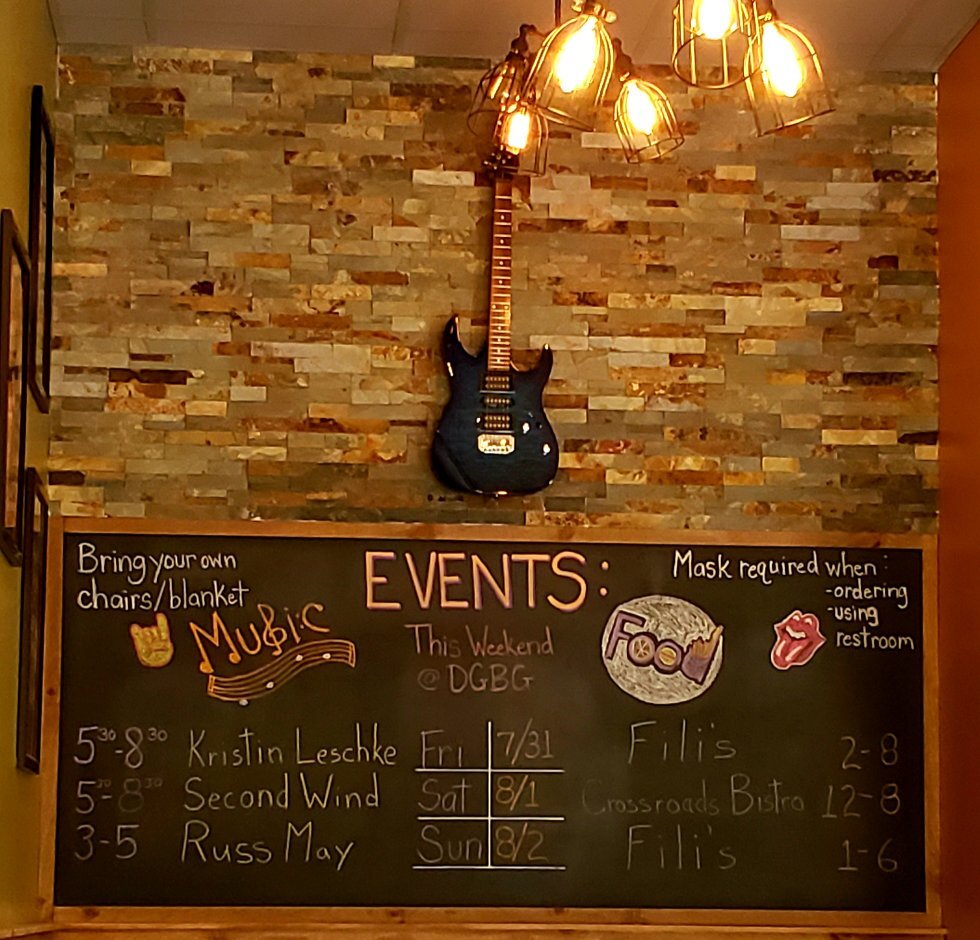 Bring your own
chairs/blanket
EVENTS:
Mask required when:
-ordering
-using
restroom
Music
This Weekend
@ DGBG
Food
5³⁰-8³⁰ Kristin Leschke Fri 7/31 Fili's 2-8
5³⁰-8³⁰ Second Wind Sat 8/1 Crossroads Bistro 12-8
3-5 Russ May Sun 8/2 Fili's 1-6